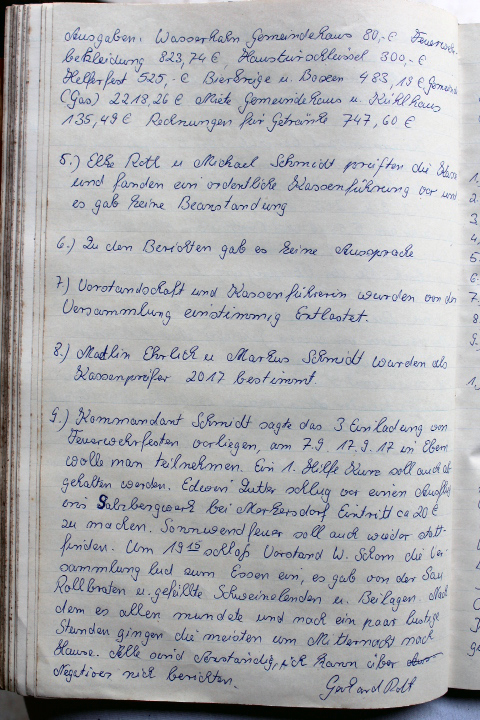 Ausgaben: Wasserhahn Gemeindehaus 80,-€ Feuerwehr-
bekleidung 823,74 €, Haustürschlüssel 300,-€
Helferfest 525,-€ Bierkrüge u. Boxen 483,19 € Gemeinde
(Gas) 2213,26 € Miete Gemeindehaus u. Kühlhaus
135,49 € Rechnungen für Getränke 747,60 €
5.) Elke Roth u Michael Schmidt prüften die Kasse
und fanden ein ordentliche Kassenführung vor und
es gab keine Beanstandung
6.) Zu den Berichten gab es keine Aussprache
7) Vorstandschaft und Kassenführerin wurden von der
Versammlung einstimmig Entlastet.
8.) Ehrlich u Markus Schmidt wurden als
Kassenprüfer 2017 bestimmt.
9.) Kommandant Schmidt sagte das 3 Einladung von
Feuerwehrfesten vorliegen, am 7.9. 17.9.17 in Ebern
wolle man teilnehmen. Ein 1. Hilfe Kurs soll auch ab
gehalten werden. Edwin schlug vor einen Ausflug
ins Salzbergwerk bei Merkersdorf Eintritt ca 20 €
zu machen. Sonnwendfeuer soll auch wieder statt-
finden. Um 19 15 schloß Vorstand W. die Ver-
sammlung lud zum Essen ein, es gab von der Sau
Rollbraten u. gefüllte Schweinelenden u. Beilagen. Nach
dem es allen mundete und noch ein paar lustige
Stunden gingen die meisten um Mitternacht nach
Hause. Alle sind verständig, ich kann über
Negatives nich berichten.
Gerhard Roth